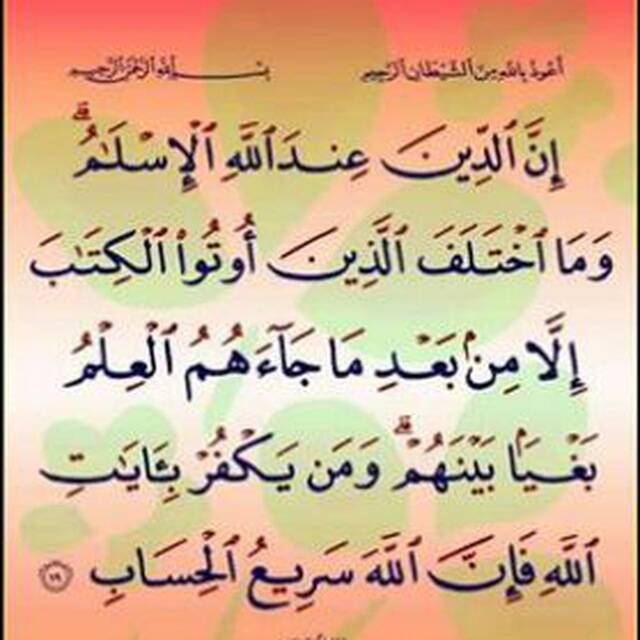 أعوذ بالله من الشيطان الرجيم بسم الله الرحمن الرحيم
إِنَّ ٱلدِّينَ عِندَ ٱللَّهِ ٱلْإِسْلَٰمُ ۗ
وَمَا ٱخْتَلَفَ ٱلَّذِينَ أُوتُوا۟ ٱلْكِتَٰبَ
إِلَّا مِنۢ بَعْدِ مَا جَآءَهُمُ ٱلْعِلْمُ
بَغْيًۢا بَيْنَهُمْ ۗ وَمَن يَكْفُرْ بِـَٔايَٰتِ
ٱللَّهِ فَإِنَّ ٱللَّهَ سَرِيعُ ٱلْحِسَابِ ١٩